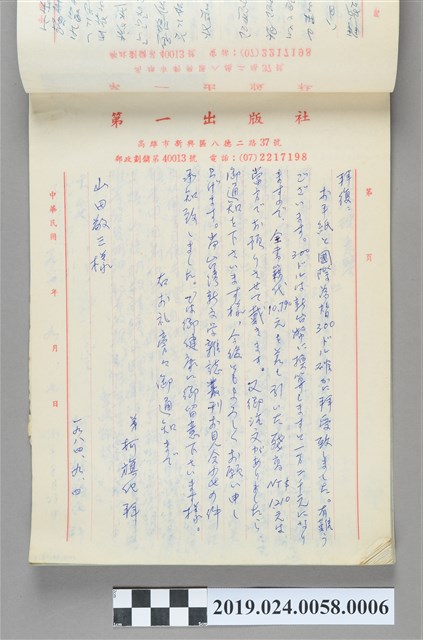 電話：(07)2217198
第一出版社
高雄市新興區八德二路37號
郵政劃儲第40013號 電話：(07)2217198
第 頁
拝復、
お手紙と國際為替300ドル確かに拝受致しました。有難う
ございます。300ドルは新台幣に換算しますと一万二千元になり
ますので、全書籍代10,790元を差し引いた残高NT$1210元は
当方でお預りさせて戴きます。又御注文がありましたら
御通知を下さいます様。今後ともよろしくお願い申し
上げます。尚台湾新文学雑誌叢刊お見合せの件
承知致しました。では御健康に御留意下さいます様。
右お礼旁々御通知まで
弟 柯旗化拝
一九八四、九、四
山田敬三様
中華民國 年 月 日
2019.024.0058.0006